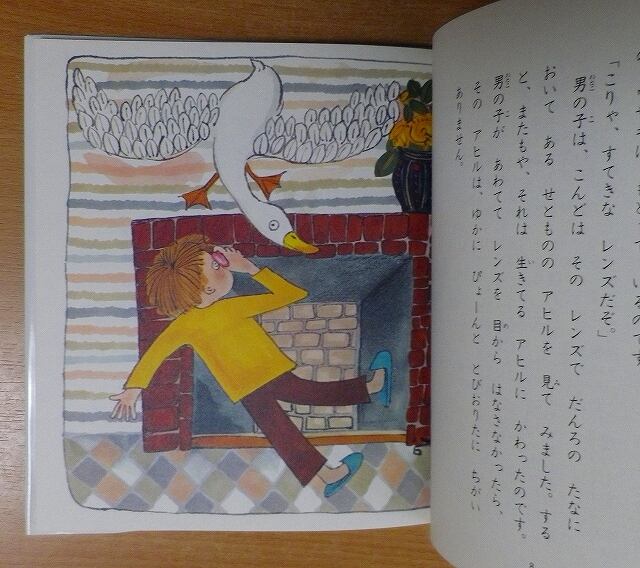 いるのです
「こりゃ、すてきな レンズだぞ。」
男の子は、こんどは その レンズで だんろの たなに
おいて ある せとものの アヒルを 見て みました。する
と、またもや、それは 生きてる アヒルに かわったのです。
男の子が あわてて レンズを 目から はなさなかったら、
その アヒルは、ゆかに ぴょーんと とびおりたに ちがい
ありません。